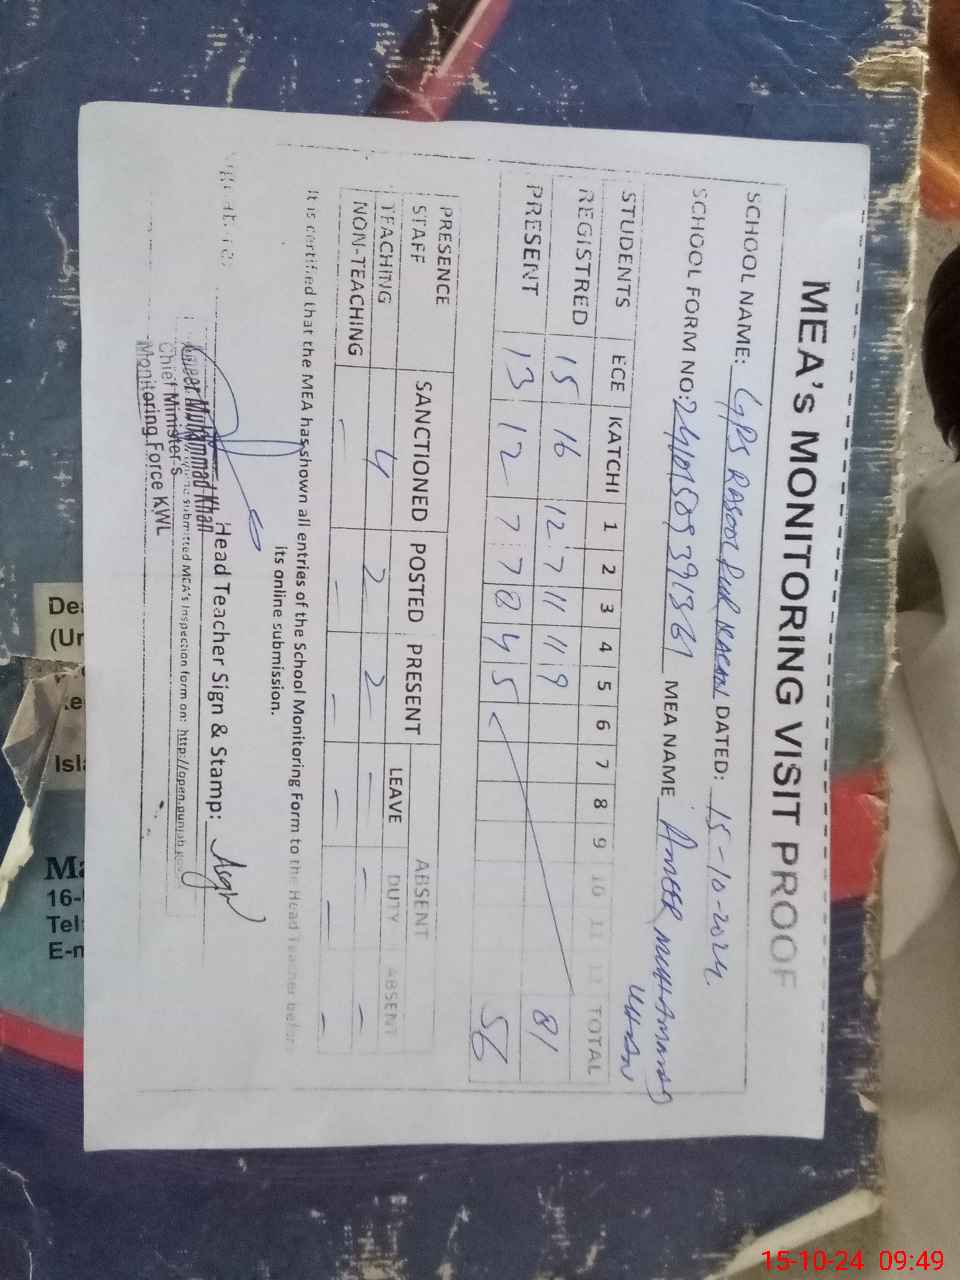 MEA's MONITORING VISIT PROOF
SCHOOL NAME: GPS RASOOL PUR DATED: 15-10-2024.
SCHOOL FORM NO: MEA NAME AMEER MUHAMMAD
KHAN
STUDENTS ECE KATCHI 1 2 3 4 5 6 7 8 9 10 11 12 TOTAL
REGISTRED 15 16 12 7 11 11 9 81
PRESENT 13 12 7 7 8 4 5 56
PRESENCE ABSENT
STAFF SANCTIONED POSTED PRESENT LEAVE DUTY ABSENT
TEACHING 4 2 2 - - -
NON-TEACHING - - - - - -
It is certified that the MEA has shown all entries of the School Monitoring Form to the Head Teacher before
its online submission.
Head Teacher Sign & Stamp:
submitted MEA's Inspection form on: http://open.punjab.gov
Ameer Muhammad Khan
Chief Minister's
Monitoring Force KWL
Dea
(Ur
Isla
Ma
16-
Tel:
E-m
15-10-24 09:49